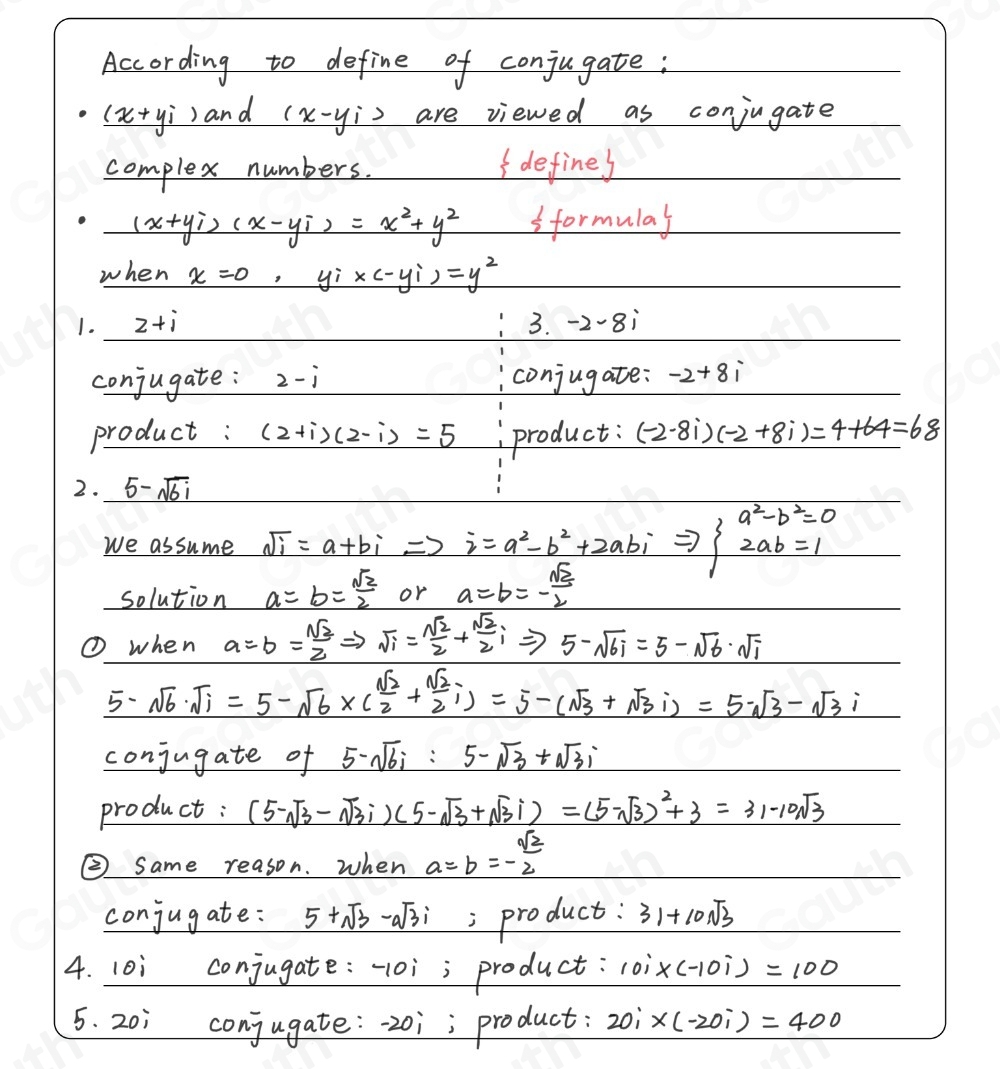 According to define of conjugate:
• (x+yi) and (x-yi) are viewed as conjugate
complex numbers. {define}
• (x+yi)(x-yi) = x²+y² {formula}
when x=0, yi×(-yi)=y²
1. 2+i
conjugate: 2-i
product: (2+i)(2-i) = 5
3. -2-8i
conjugate: -2+8i
product: (-2-8i)(-2+8i)=4+64=68
2. 5-√6i
We assume √i = a+bi => i=a²-b²+2abi => { a²-b²=0
2ab=1
solution a=b=√2/2 or a=b=-√2/2
① when a=b=√2/2 => √i=√2/2+√2/2i => 5-√6i=5-√6·√i
5-√6·√i = 5-√6×(√2/2+√2/2i) = 5-(√3+√3i) = 5-√3-√3i
conjugate of 5-√6i: 5-√3+√3i
product: (5-√3-√3i)(5-√3+√3i) =(5-√3)²+3 = 31-10√3
② Same reason. when a=b=-√2/2
conjugate: 5+√3-√3i; product: 31+10√3
4. 10i conjugate: -10i; product: 10i×(-10i)=100
5. 20i conjugate: -20i; product: 20i×(-20i)=400
Gauth